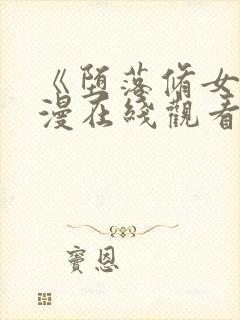 《堕落脩女
漫在綫觀看
竇恩